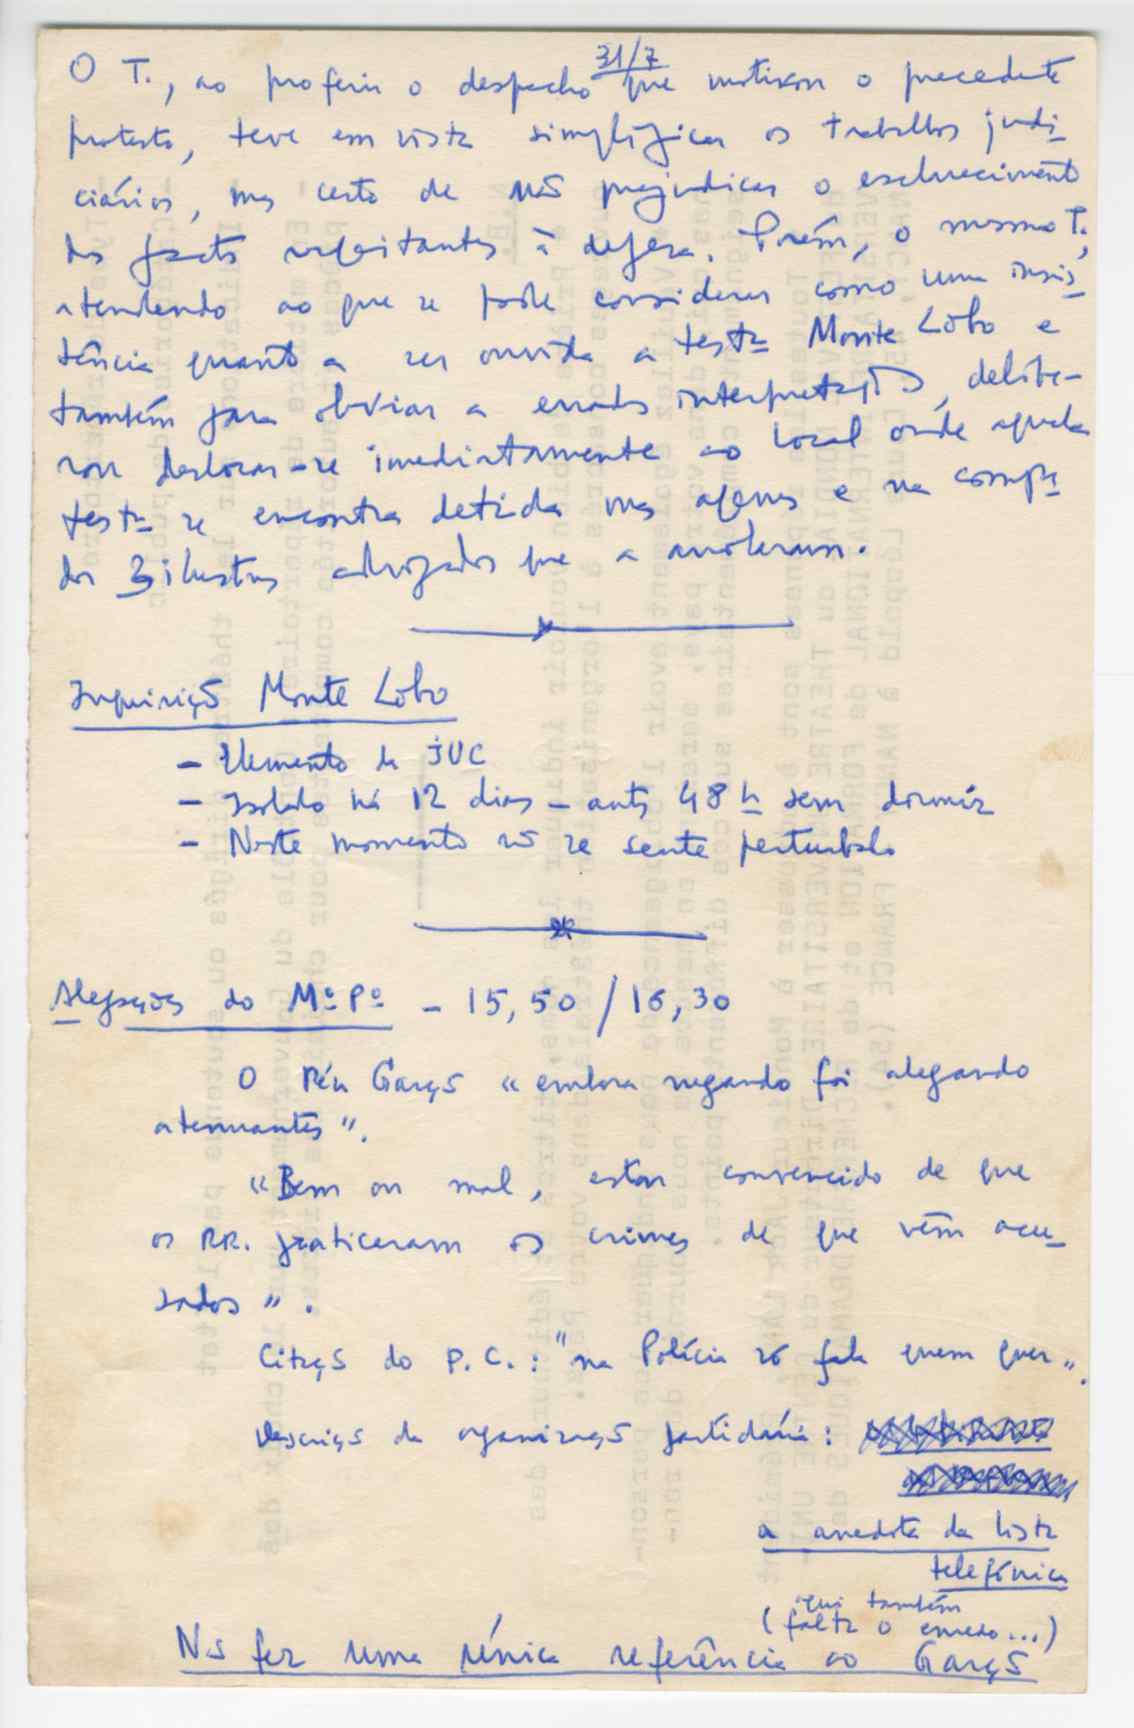 31/7
O T., ao proferir o despacho que motivou o precedente
protesto, teve em vista simplificar os trabalhos judi-
ciários, mas certo de não prejudicar o esclarecimento
dos factos respeitantes à defesa. Porém, o mesmo T.,
atendendo ao que se pode considerar como uma insis-
tência quanto a ser ouvida a testª Monte Lobo e
também para obviar a erradas interpretações, delibe-
rou deslocar-se imediatamente ao local onde aquela
testª se encontra detida mas apenas e na compª
dos 3 ilustres advogados que a arrolaram.
Inquirição Monte Lobo
- Elemento da JUC
- Isolado há 12 dias - antes 48 h sem dormir
- Neste momento não se sente perturbado
Alegações do Mº Pº - 15,50 / 16,30
O Réu Garção "embora negando foi alegando
atenuantes".
"Bem ou mal, estou convencido de que
os RR. praticaram os crimes de que vêm acu-
sados".
Citação do P. C.: "na Polícia só fala quem quer".
Descrição da organização partidária:
a anedota da lista
telefónica
(aqui também
falta o enredo...)
Não fez uma única referência ao Garção